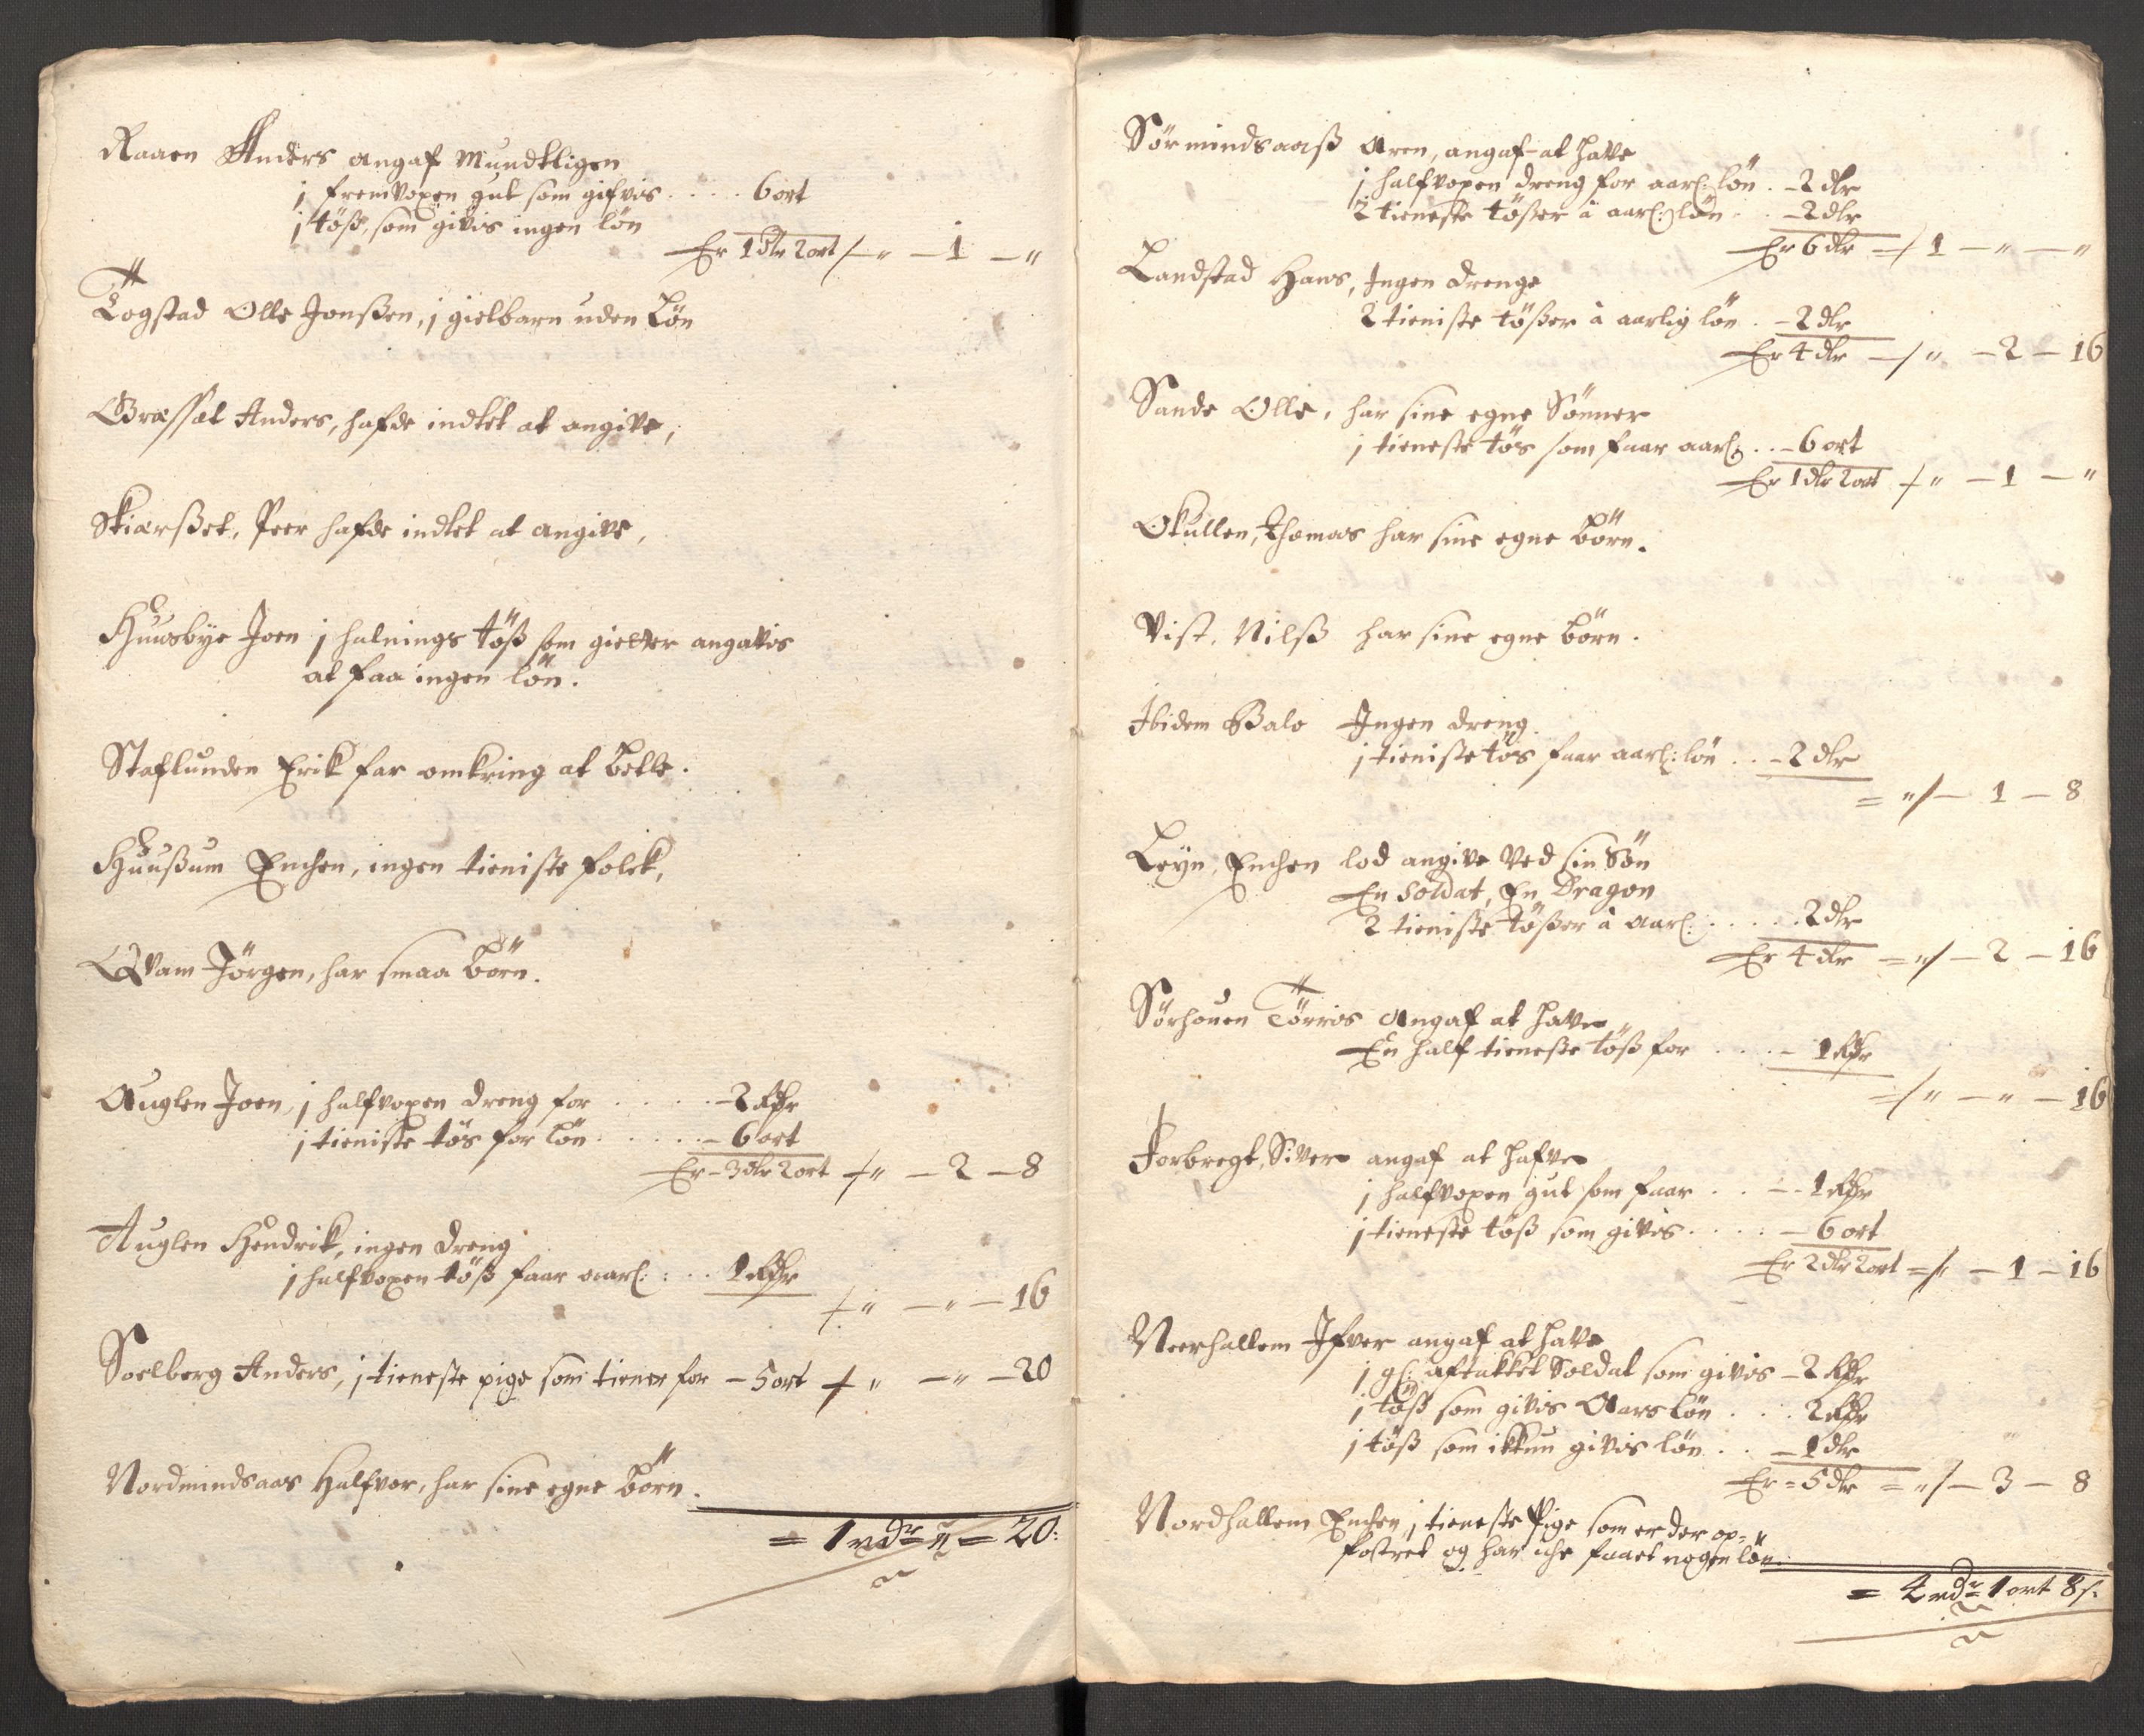 Raaen Anders angaf Mundtligen
j fremvoxen gut som gifvis . . . . 6 ort
j töß, som givis ingen lön
Er 1 dlr 2 ort /— " — 1 — "
Togstad Olle Jonßen, j gielbarn uden Lön
Græsset Anders, hafde indtet at angive,
Skiærßet, Peer hafde indtet at angive,
Huusbye Joen j halnings töß som gietter angavis
at faa ingen lön.
Staflunden Erik far omkring at betle.
Huußum Enchen, ingen tieniste folck,
Qvam Jörgen, har smaa börn.
Auglen Joen, j halfvoxen dreng for . . . . . – 2 Rdr
j tieniste tös for lön . . . . . – 6 ort
Er – 3 dlr 2 ort /— " — 2 — 8
Auglen Hendrik, ingen dreng
j halfvoxen töß faar aarl: . . . 1 Rdr
/— " — " — 16
Soelberg Anders, j tieneste pige som tiener for – 5 ort /— " — " — 20
Nordmindsaas Halfvor, har sine egne börn.
= 1 rdr " = 20:
Sörmindsaaß Aren, angaf at have
j halfvoxen dreng for aarl: lön . – 2 dlr
2 tieneste tößer à aarl: lön . . – 2 dlr
Er 6 dlr =/ 1 — " — "
Landstad Hans, Ingen drenge
2 tieniste tößer à aarlig lön . – 2 dlr
Er 4 dlr —/ " — 2 — 16
Sande Olle, har sine egne Sönner
j tieneste tös som faar aarl: . . – 6 ort
Er 1 dlr 2 ort /— " — 1 — "
Okullen, Thomas har sine egne börn.
Vist, Nilß har sine egne börn.
Ibidem Balo Ingen dreng
j tieniste tös faar aarl: lön . . – 2 dlr
= "/— 1 — 8
Leyn, Enchen lod angive Ved sin Sön
En Soldat, En Dragon
2 tieniste tößer à aarl: . . . . . 2 dlr
Er 4 dlr = "/— 2 — 16
Sörhouen Törris Angaf at have
En half tieneste töß for . . . . – 1 Rdr
=/ " — " — 16
Forbregt, Siver angaf at hafve
j halfvoxen gut som faar . . – 1 Rdr
j tieneste töß som givis . . . . – 6 ort
Er 2 dlr 2 ort =/ " — 1 — 16
Neerhallem Ifver angaf at have
j gl: aftakket Soldat som givis – 2 Rdr
j töß som givis Aars lön . . . 2 Rdr
j töß som ikkun givis lön . . – 1 dlr
Er = 5 dlr = "/— 3 — 8
Nordhallem Enchen j tieneste Pige som er der op=
fostret og har iche faaet nogen lön.
= 4 rdr 1 ort 8 s: